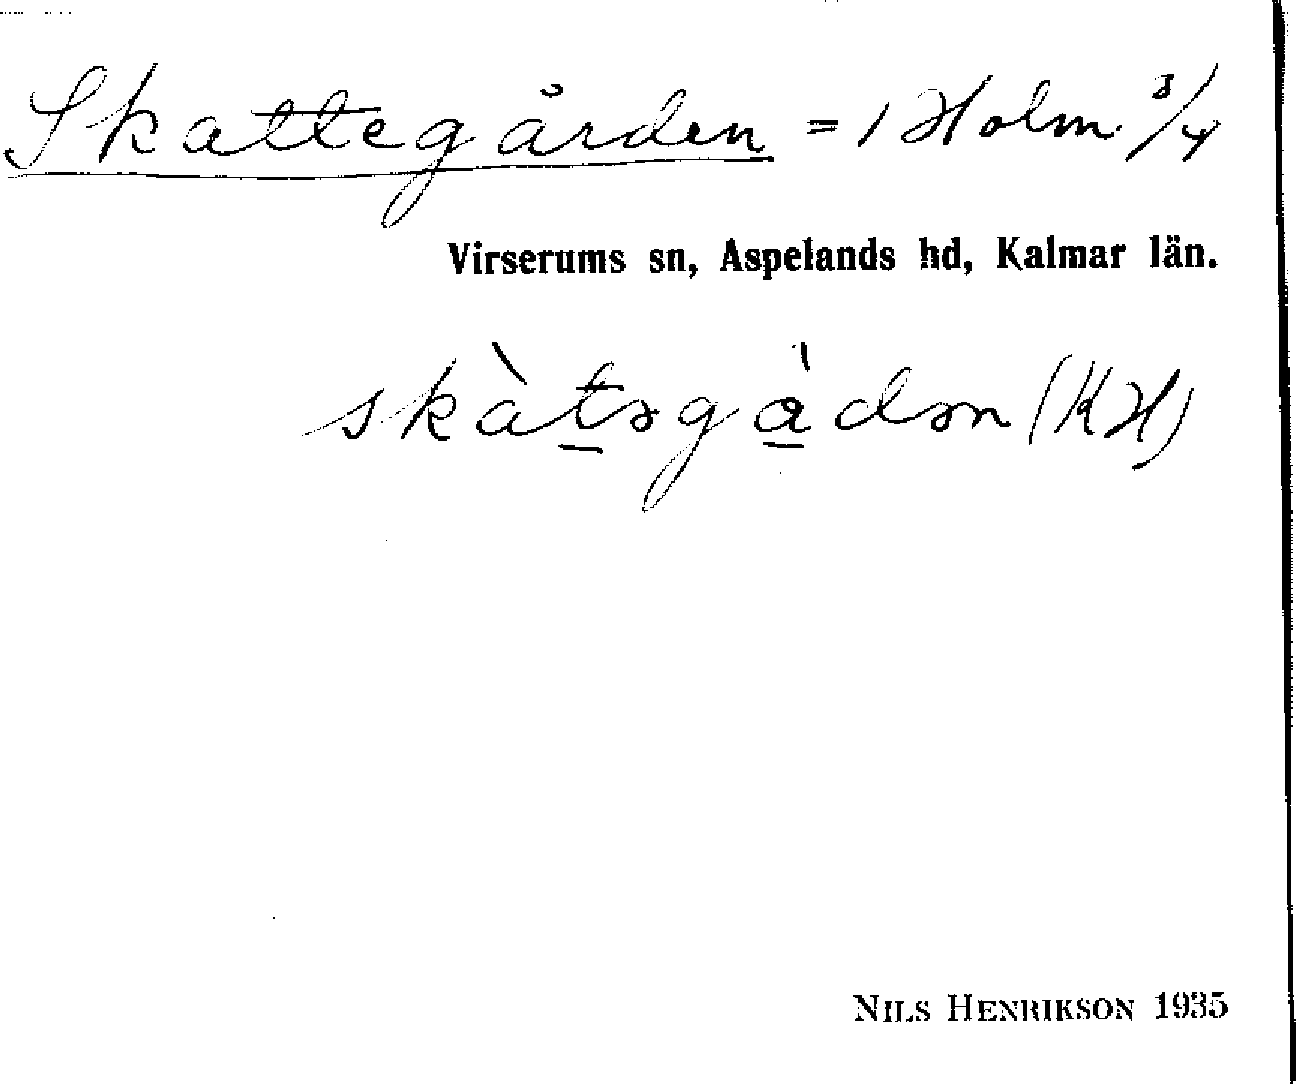 Skattegården = 1 Holm 3/4
Virserums sn, Aspelands hd, Kalmar län.
(KH)
NILS HENRIKSON 1935